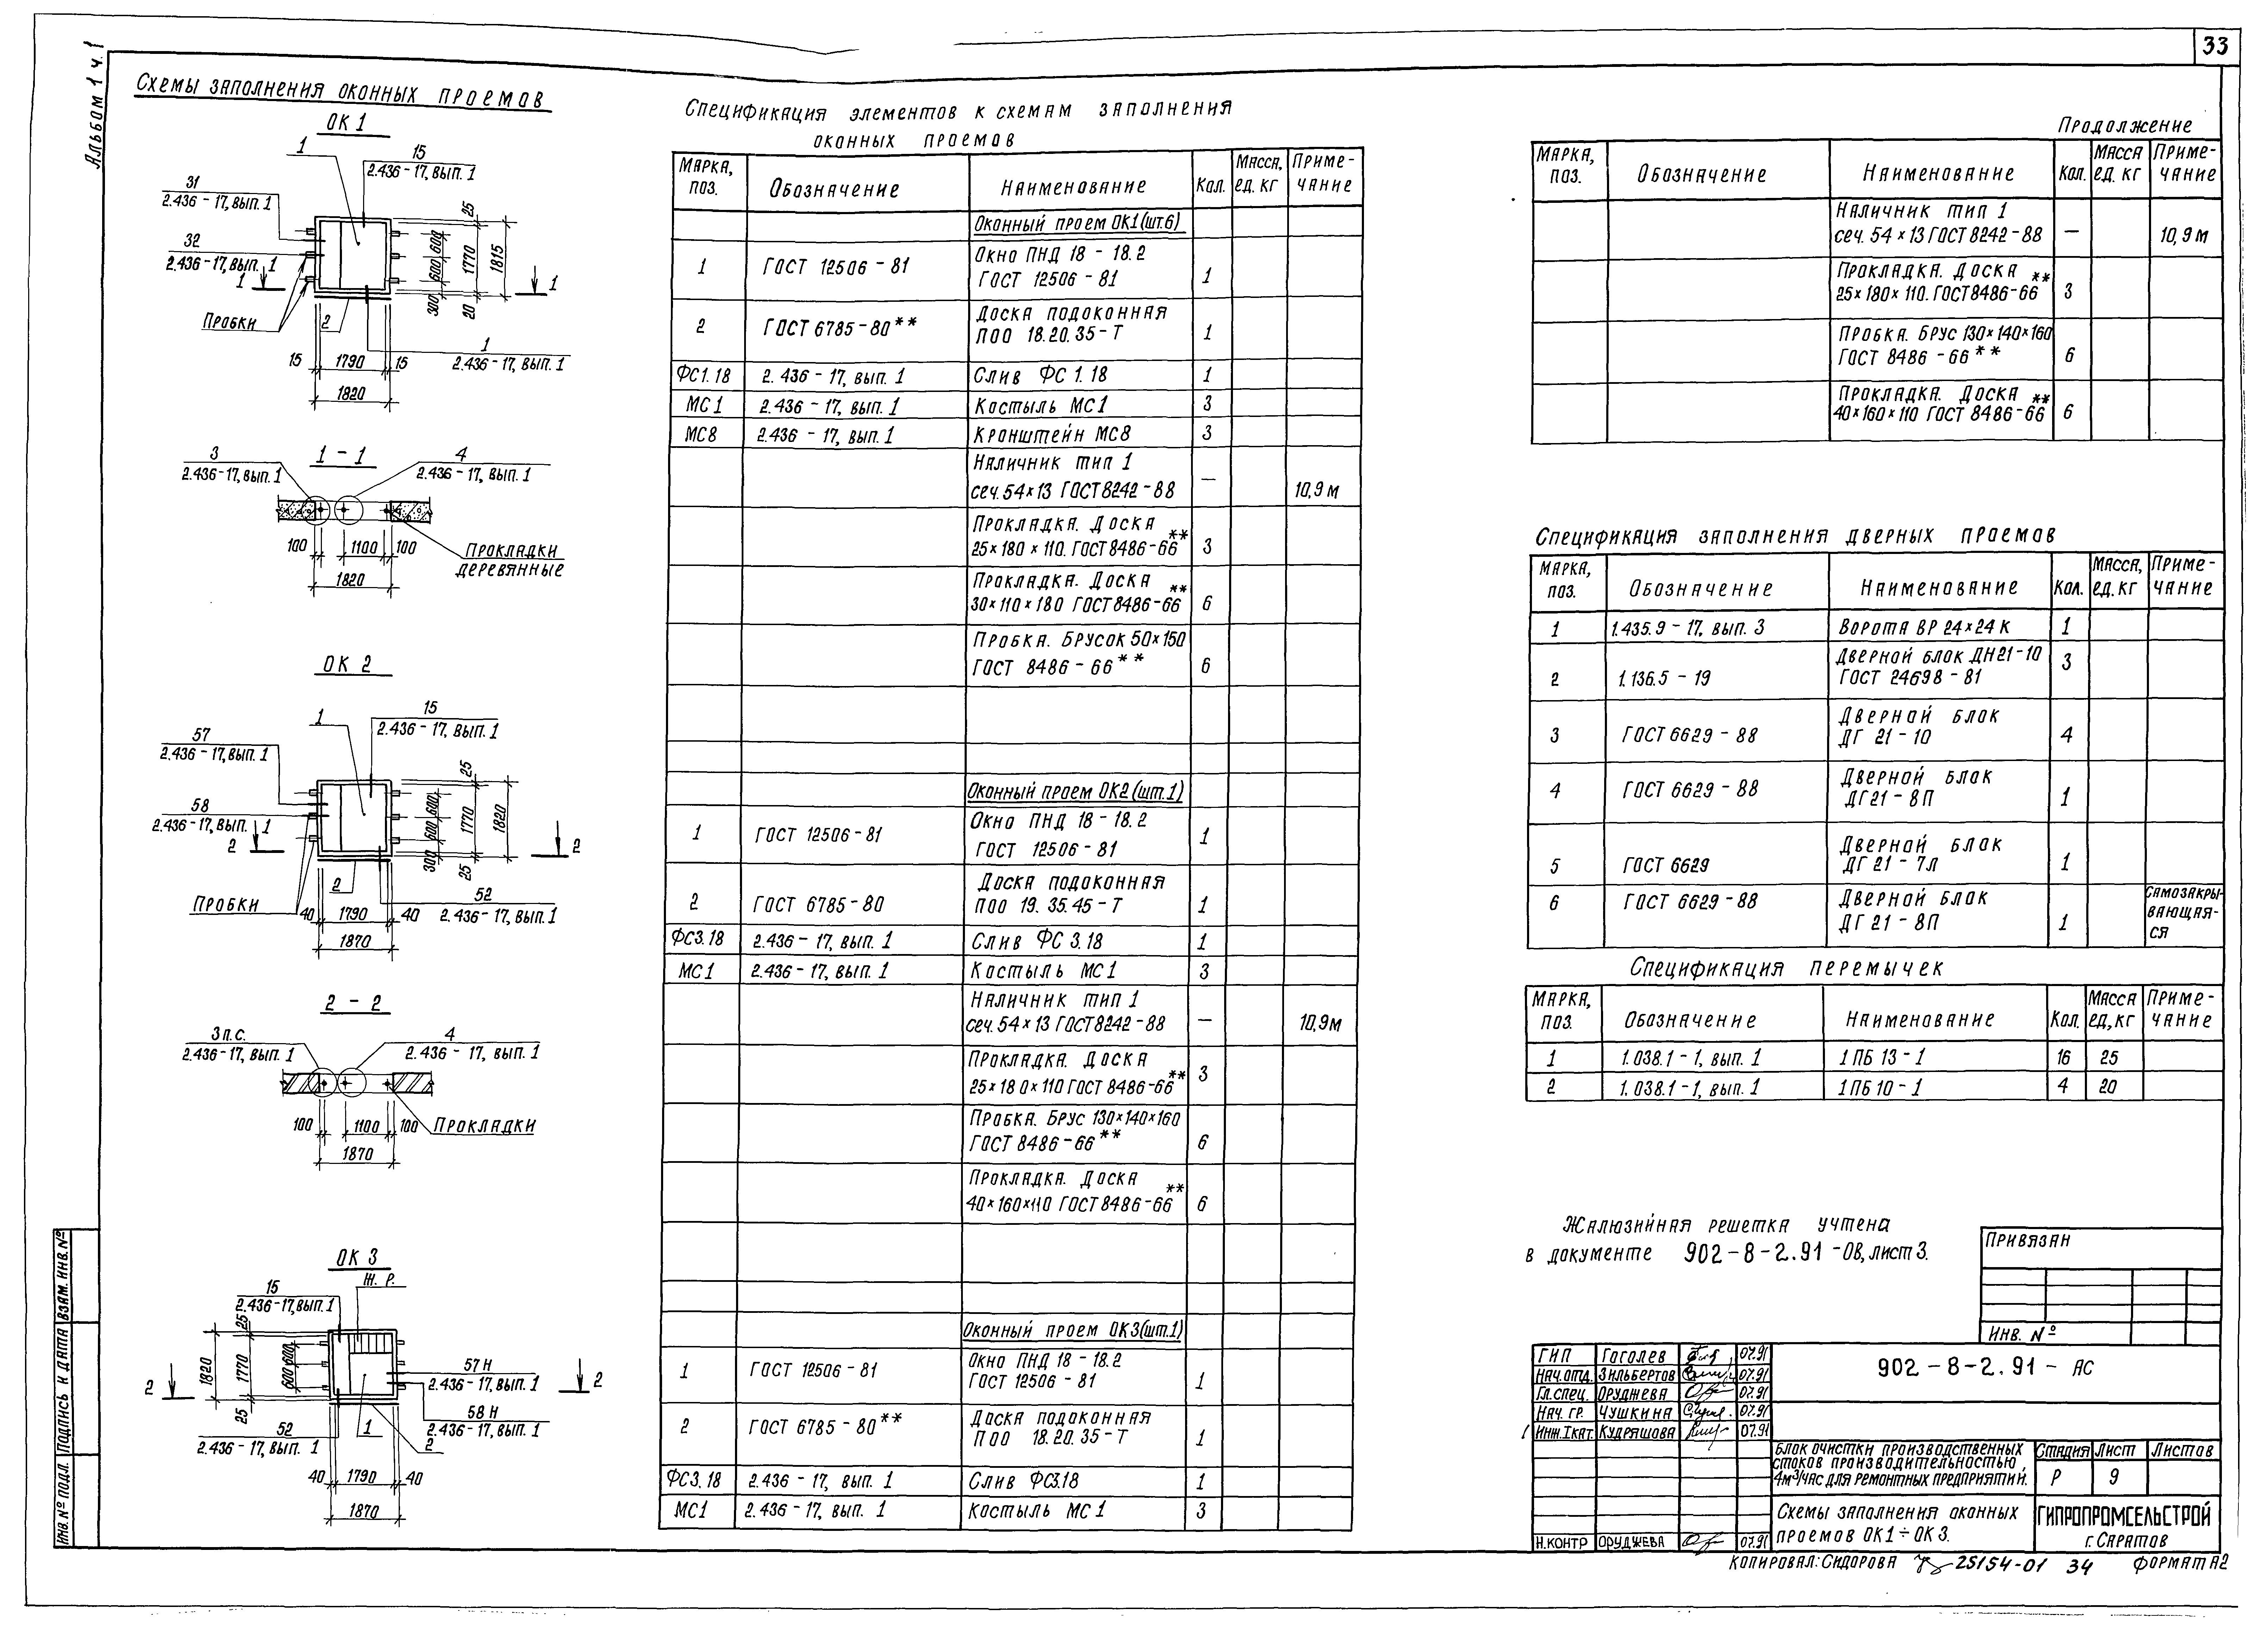 33
Альбом 1 ч.1
Схемы заполнения оконных проемов
ОК 1
1
15
2.436-17, вып. 1
31
2.436-17, вып. 1
32
2.436-17, вып. 1
1
1
Пробки
2
1
2.436-17, вып. 1
25
600
600
300
1770
20
1815
15
1790
15
1820
1-1
3
2.436-17, вып. 1
4
2.436-17, вып. 1
100
1100
100
1820
Прокладки
деревянные
ОК 2
1
15
2.436-17, вып. 1
57
2.436-17, вып. 1
58
2.436-17, вып. 1
2
2
Пробки
2
52
2.436-17, вып. 1
25
600
600
300
1770
25
1820
40
1790
40
1870
2-2
3 п.с.
2.436-17, вып. 1
4
2.436-17, вып. 1
100
1100
100
1870
Прокладки
ОК 3
15
2.436-17, вып. 1
Ж. Р.
25
1820
1770
600
600
25
2
2
57 Н
2.436-17, вып. 1
58 Н
2.436-17, вып. 1
52
2.436-17, вып. 1
1
2
40
1790
40
1870
Спецификация элементов к схемам заполнения
оконных проемов
Марка, поз. Обозначение Наименование Кол. Масса, ед. кг Приме-чание
Оконный проем ОК1 (шт.6)
1 ГОСТ 12506-81 Окно ПНД 18-18.2
ГОСТ 12506-81 1
2 ГОСТ 6785-80** Доска подоконная
ПОО 18.20.35-Т 1
ФС1.18 2.436-17, вып. 1 Слив ФС 1.18 1
МС1 2.436-17, вып. 1 Костыль МС1 3
МС8 2.436-17, вып. 1 Кронштейн МС8 3
Наличник тип 1
сеч. 54×13 ГОСТ 8242-88 — 10,9 м
Прокладка. Доска
25×180×110. ГОСТ 8486-66** 3
Прокладка. Доска
30×110×180 ГОСТ 8486-66** 6
Пробка. Брусок 50×150
ГОСТ 8486-66** 6
Оконный проем ОК2 (шт.1)
1 ГОСТ 12506-81 Окно ПНД 18-18.2
ГОСТ 12506-81 1
2 ГОСТ 6785-80 Доска подоконная
ПОО 19.35.45-Т 1
ФС3.18 2.436-17, вып. 1 Слив ФС 3.18 1
МС1 2.436-17, вып. 1 Костыль МС1 3
Наличник тип 1
сеч. 54×13 ГОСТ 8242-88 — 10,9м
Прокладка. Доска
25×180×110 ГОСТ 8486-66** 3
Пробка. Брус 130×140×160
ГОСТ 8486-66** 6
Прокладка. Доска
40×160×110 ГОСТ 8486-66** 6
Оконный проем ОК3 (шт.1)
1 ГОСТ 12506-81 Окно ПНД 18-18.2
ГОСТ 12506-81 1
2 ГОСТ 6785-80** Доска подоконная
ПОО 18.20.35-Т 1
ФС3.18 2.436-17, вып. 1 Слив ФС3.18 1
МС1 2.436-17, вып. 1 Костыль МС1 3
Продолжение
Марка, поз. Обозначение Наименование Кол. Масса ед. кг Приме-чание
Наличник тип 1
сеч. 54×13 ГОСТ 8242-88 — 10,9 м
Прокладка. Доска
25×180×110. ГОСТ 8486-66** 3
Пробка. Брус 130×140×160
ГОСТ 8486-66** 6
Прокладка. Доска
40×160×110 ГОСТ 8486-66** 6
Спецификация заполнения дверных проемов
Марка, поз. Обозначение Наименование Кол. Масса, ед. кг Приме-чание
1 1.435.9-17, вып. 3 Ворота ВР 24×24 К 1
2 1.136.5-19 Дверной блок ДН21-10
ГОСТ 24698-81 3
3 ГОСТ 6629-88 Дверной блок
ДГ 21-10 4
4 ГОСТ 6629-88 Дверной блок
ДГ21-8П 1
5 ГОСТ 6629 Дверной блок
ДГ 21-7Л 1
6 ГОСТ 6629-88 Дверной блок
ДГ 21-8П 1 Самозакры-вающая-ся
Спецификация перемычек
Марка, поз. Обозначение Наименование Кол. Масса ед, кг Приме-чание
1 1.038.1-1, вып. 1 1 ПБ 13-1 16 25
2 1.038.1-1, вып. 1 1 ПБ 10-1 4 20
Жалюзийная решетка учтена
в документе 902-8-2.91-ОВ, лист 3.
Привязан
Инв. №
ГИП Гоголев 07.91
Нач.отд. Зильбертов 07.91
Гл.спец. Оруджева 07.91
Нач. гр. Чушкина 07.91
Инж.Iкат. Кудряшова 07.91
Н.контр Оруджева 07.91
902-8-2.91-АС
Блок очистки производственных
стоков производительностью,
4м³/час для ремонтных предприятий.
Стадия Лист Листов
Р 9
Схемы заполнения оконных
проемов ОК1÷ОК3.
ГИПРОПРОМСЕЛЬСТРОЙ
г. Саратов
Копировал: Сидорова 25154-01 34 Формат А2
Инв. № подл. Подпись и дата Взам. инв. №